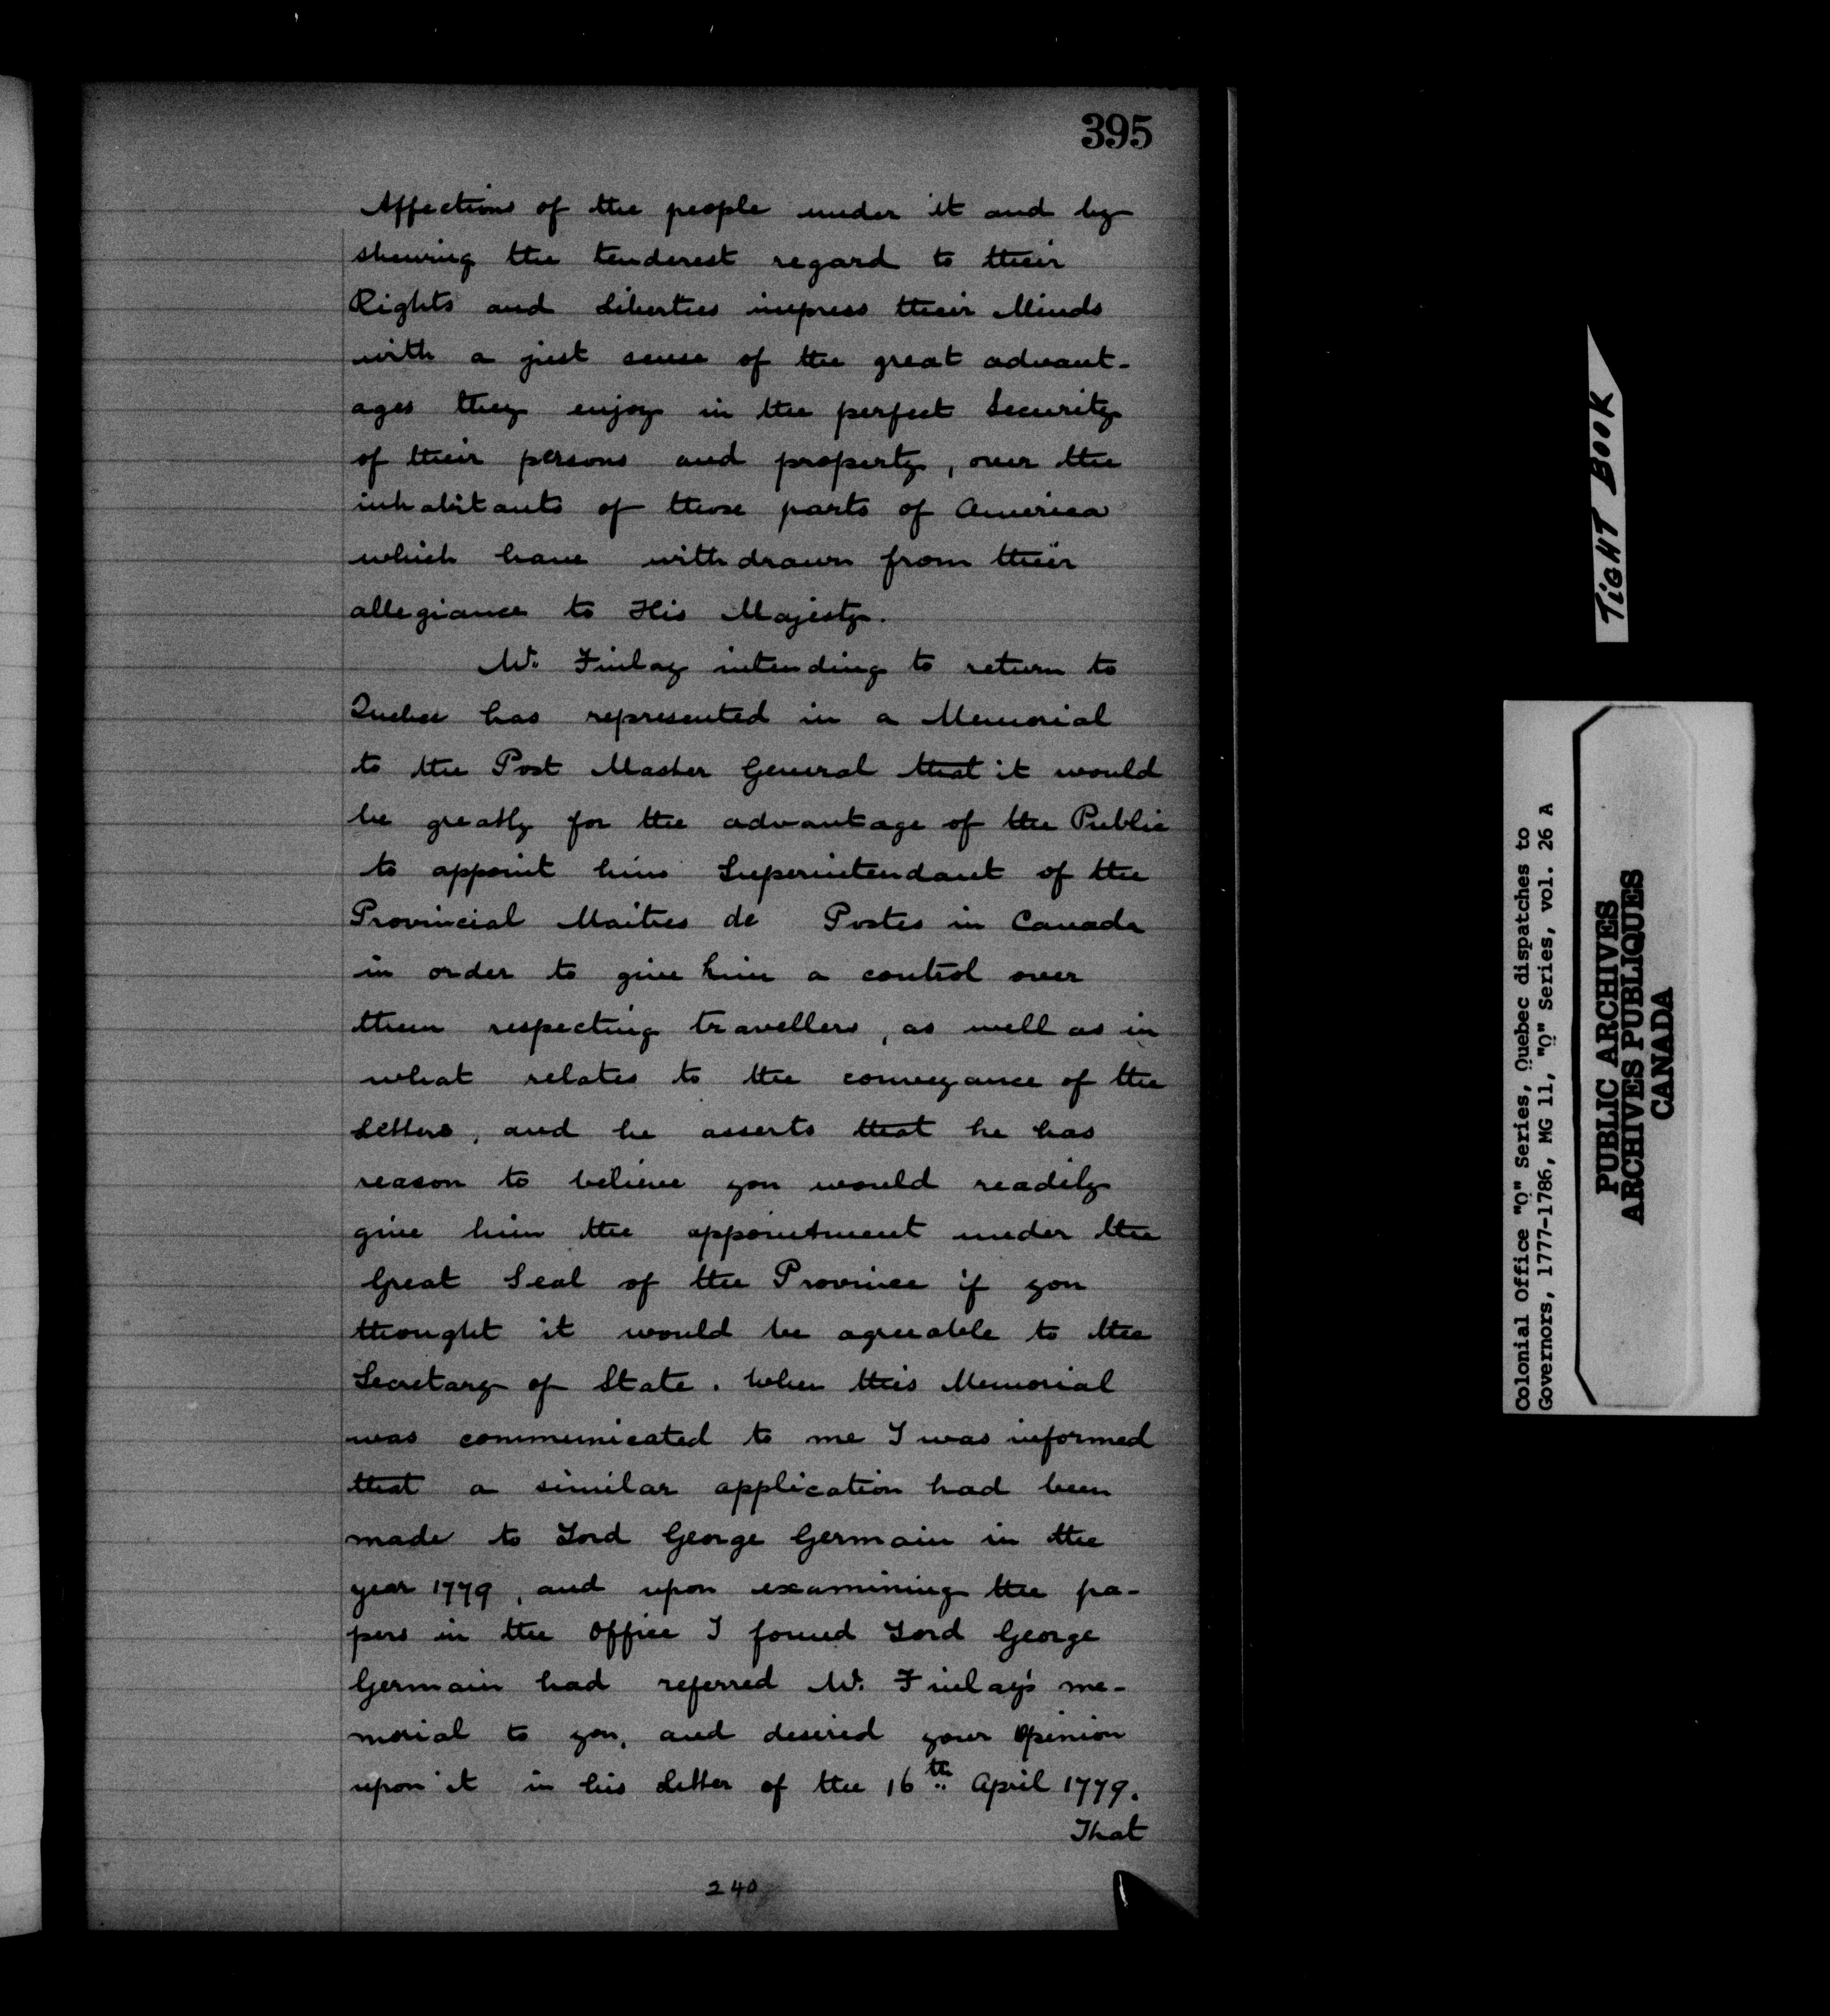 395
Affections of the people under it and by
shewing the tenderest regard to their
Rights and Liberties impress their Minds
with a just sense of the great advant-
ages they enjoy in the perfect Security
of their persons and property, over the
inhabitants of those parts of America
which have withdrawn from their
allegiance to His Majesty.
Mr. Finlay intending to return to
Quebec has represented in a Memorial
to the Post Master General that it would
be greatly for the advantage of the Public
to appoint him Superintendant of the
Provincial Maitres de Postes in Canada
in order to give him a control over
them respecting travellers, as well as in
what relates to the conveyance of the
Letters, and he asserts that he has
reason to believe you would readily
give him the appointment under the
Great Seal of the Province if you
thought it would be agreeable to the
Secretary of State. When this Memorial
was communicated to me I was informed
that a similar application had been
made to Lord George Germain in the
year 1779, and upon examining the pa-
pers in the Office I found Lord George
Germain had referred Mr. Finlay's me-
morial to you, and desired your Opinion
upon it in his Letter of the 16th April 1779.
That
240
TIGHT BOOK
Colonial Office "Q" Series, Quebec dispatches to
Governors, 1777-1786, MG 11, "Q" Series, vol. 26 A
PUBLIC ARCHIVES
ARCHIVES PUBLIQUES
CANADA